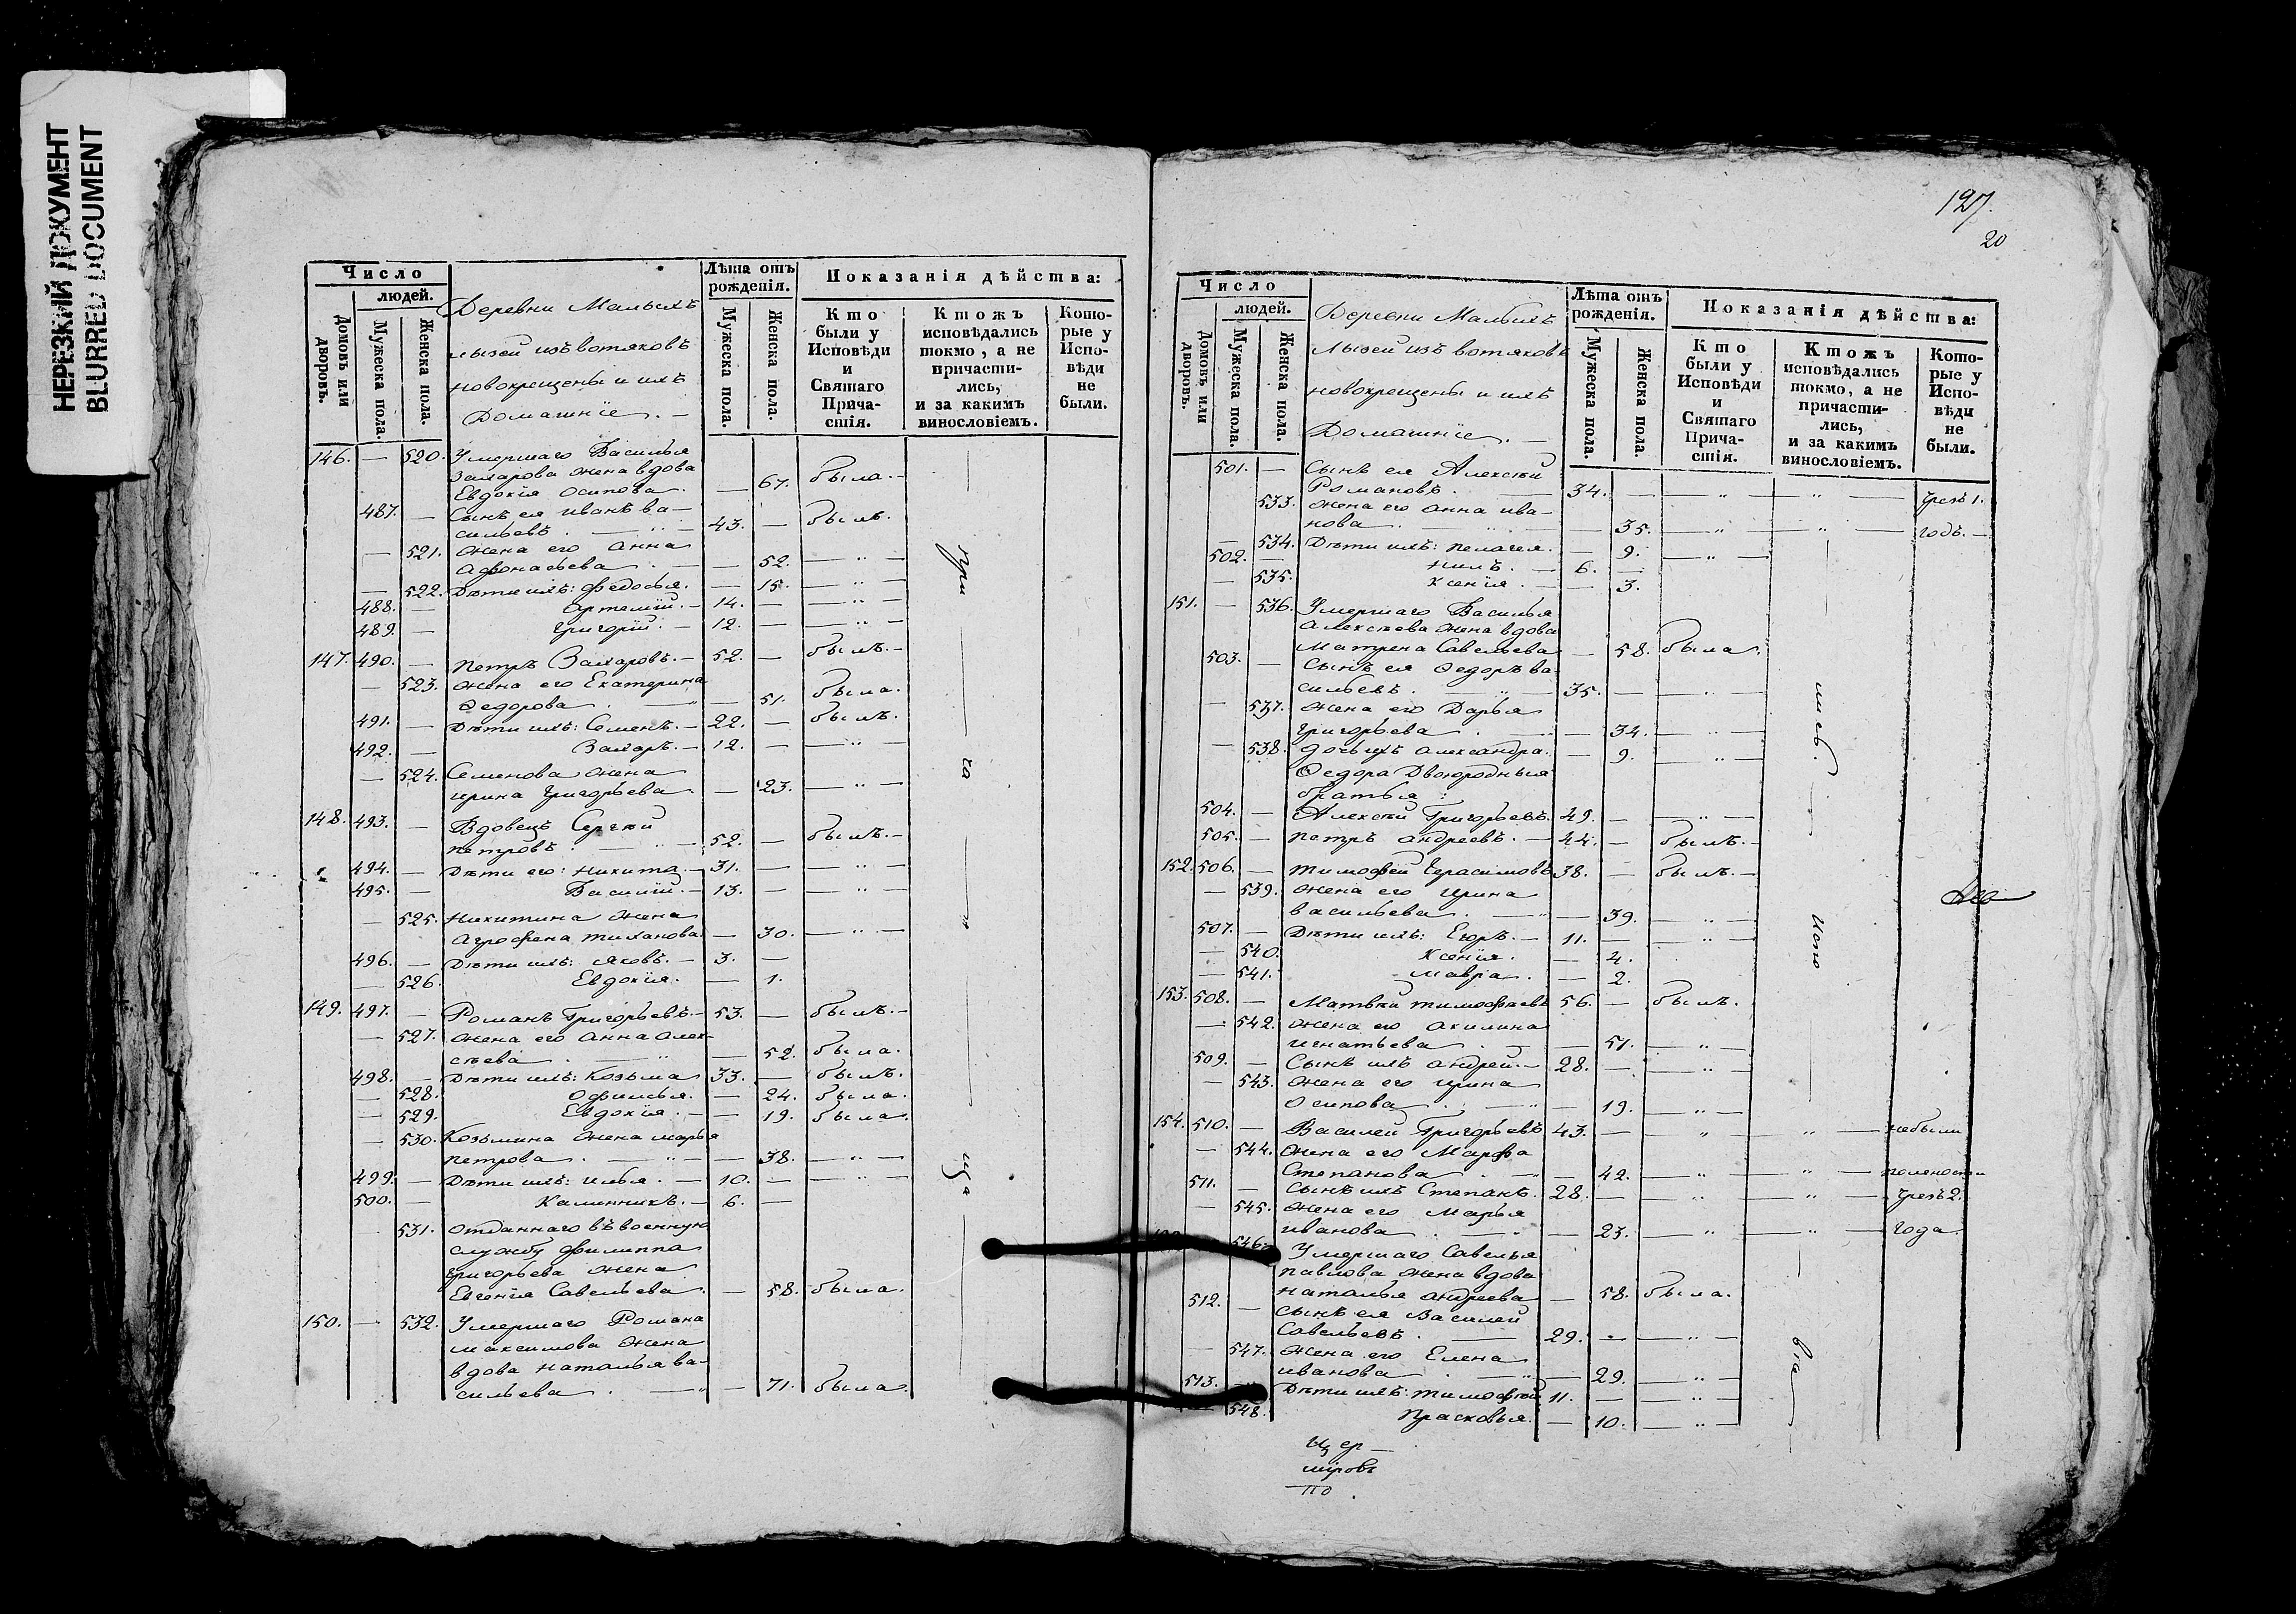 НЕРЕЗКИЙ ДОКУМЕНТ
BLURRED DOCUMENT
Число
людей.
Домовъ или дворовъ.
Мужеска пола.
Женска пола.
Деревни Малыхъ
лызей изъ вотяковъ
новокрещены и ихъ
Домашніе. —
Лѣта отъ рожденія.
Мужеска пола.
Женска пола.
Показанія дѣйства:
Кто были у Исповѣди и Святаго Причастія.
Ктожъ исповѣдались токмо, а не причастились, и за какимъ винословіемъ.
Которые у Исповѣди не были.
146. — 520. Умершаго Василья
Захарова жена вдова
Евдокія Осипова. — 67. была. —
487. — Сынъ ея Иванъ Ва-
сильевъ. — 43. — былъ.
— 521. Жена его Анна
Афонасьева. — — 52. — „ —
— 522. Дѣти ихъ: Федосья. — 15. — „ —
488. — Артемій. — 14. — — „ —
489. — Григорій. — 12. — — „ —
147. 490. — Петръ Захаровъ. — 52. — былъ. —
— 523. Жена его Екатерина
Ѳедорова. — „ — 51. была.
491. — Дѣти ихъ: Семенъ. — 22. — былъ.
492. — Захаръ. — 12. — — „ —
— 524. Семенова жена
Ирина Григорьева — 23. — „ —
148. 493. — Вдовецъ Сергѣй
Петровъ. — „ — 52. — былъ. —
494. — Дѣти его: Никита. — 31. — — „ —
495. — Василій. — 13. — — „ —
— 525. Никитина жена
Агрофена Тиханова. — 30. — „ —
496. — Дѣти ихъ: Яковъ. — 3. —
— 526. Евдокія. — 1.
149. 497. — Романъ Григорьевъ. — 53. — былъ. —
— 527. Жена его Анна Алек-
сѣева. — „ — 52. была.
498. — Дѣти ихъ: Козьма 33. — былъ.
— 528. Офимья. — 24. была.
— 529. Евдокія. — — 19. была.
— 530. Козьмина жена Марья
Петрова. — „ — — 38. — „ —
499. — Дѣти ихъ: Илья. — 10. — — „ —
500. — Калинникъ. — 6. —
531. Отданнаго въ военную
службу Филиппа
Григорьева жена
Евгенія Савельева. — 58. была.
150. — 532. Умершаго Романа
Максимова жена
вдова Наталья Ва-
сильева. — „ — 71. была.
При — ча — ща —
127.
20
Число
людей.
Домовъ или дворовъ.
Мужеска пола.
Женска пола.
Деревни Малыхъ
лызей изъ вотяковъ
новокрещены и ихъ
Домашніе. —
Лѣта отъ рожденія.
Мужеска пола.
Женска пола.
Показанія дѣйства:
Кто были у Исповѣди и Святаго Причастія.
Ктожъ исповѣдались токмо, а не причастились, и за какимъ винословіемъ.
Которые у Исповѣди не были.
501. — Сынъ ея Алексѣй
Романовъ. — 34. — — „ — — „ — чрезъ 1.
533. Жена его Анна Ива-
нова. — 35. — „ — — „ — годъ. —
— 534. Дѣти ихъ: Пелагея. — 9. — „ —
502. — Нилъ. — 6. —
— 535. Ксенія. — — 3.
151. — 536. Умершаго Василья
Алексѣева жена вдова
Матрена Савельева — 58. была.
503. — Сынъ ея Ѳедоръ Ва-
сильевъ. — „ — 35. — — „ —
— 537. Жена его Дарья
Григорьева. — — 34. — „ —
— 538. Дочь ихъ Александра. — 9. — „ —
Ѳедора Двоюродныя
братья:
504. — Алексѣй Григорьевъ 49. — — „ —
505. — Петръ Андреевъ. — 44. — былъ. —
152. 506. — Тимофей Герасимовъ 38. — былъ. —
— 539. Жена его Ирина
Васильева. — „ — 39. — „ —
507. — Дѣти ихъ: Егоръ. — 11. — — „ —
— 540. Ксенія. — 4.
— 541. Мавра. — 2.
153. 508. — Матвѣй Тимофѣевъ 56. — былъ.
— 542. Жена его Акилина
Игнатьева. — — 51. — „ —
509. — Сынъ ихъ Андрей. — 28. — — „ —
— 543. Жена его Ирина
Осипова. — „ — 19. — „ —
154. 510. — Василей Григорьевъ 43. — — „ — — „ — небыли
— 544. Жена его Марфа
Степанова. — — 42. — „ — — „ —
511. — Сынъ ихъ Степанъ. 28. — — „ — — „ — чрезъ 2.
— 545. Жена его Марья
Иванова. — — 23. — „ — — „ — года.
546. Умершаго Савелья
Павлова жена вдова
Наталья Андреева — 58. была.
512. — Сынъ ея Василей
Савельевъ. — 29. — — „ —
— 547. Жена его Елена
Иванова. — „ — 29. — „ —
513. — Дѣти ихъ: Тимофѣй 11. — — „ —
— 548. Прасковья. — 10. — „ —